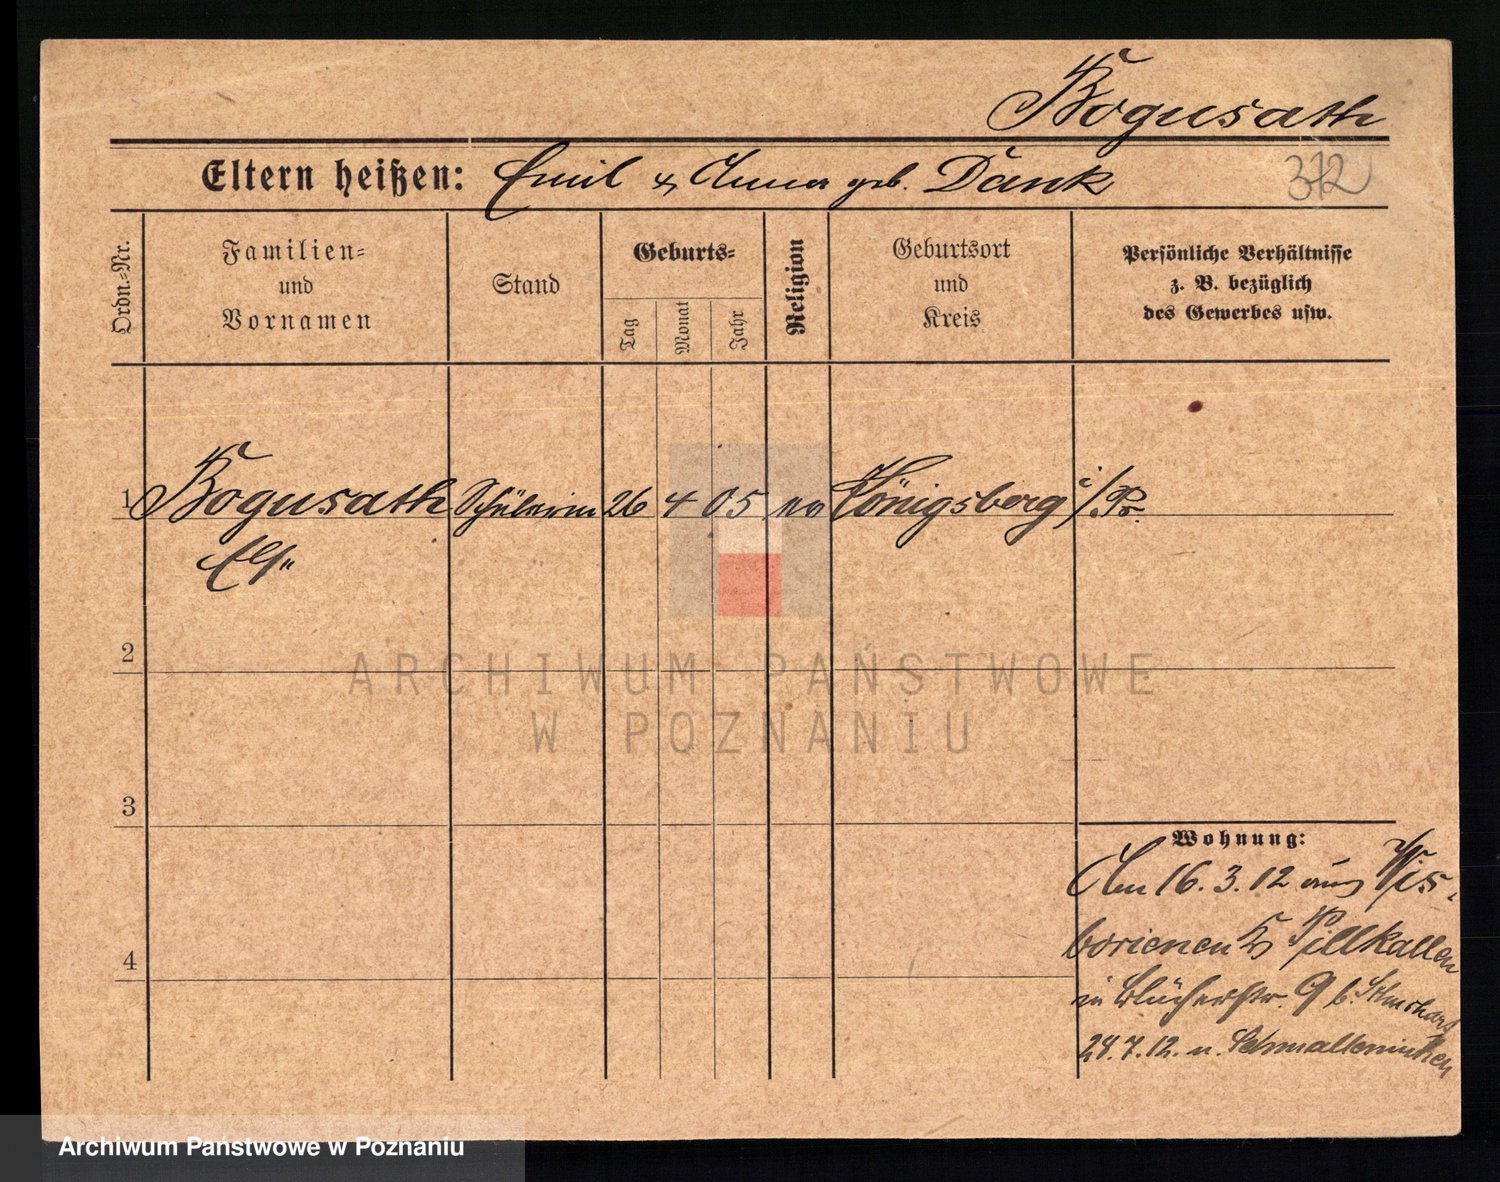 Bogusath
Eltern heißen: Emil & Anna geb. Dank
312
Ordn.-Nr.
Familien-
und
Vornamen
Stand
Geburts-
Tag
Monat
Jahr
Religion
Geburtsort
und
Kreis
Persönliche Verhältnisse
z. B. bezüglich
des Gewerbes usw.
1 Bogusath Schülerin 26 4 05 ev Königsberg i/Pr.
2
3
4
Wohnung:
Am 16.3.12 aus Wis-
borienen Kr Pillkallen
in Blücherstr. 9 b.
28.7.12. n. Schmalleninken
ARCHIWUM PAŃSTWOWE
W POZNANIU
Archiwum Państwowe w Poznaniu